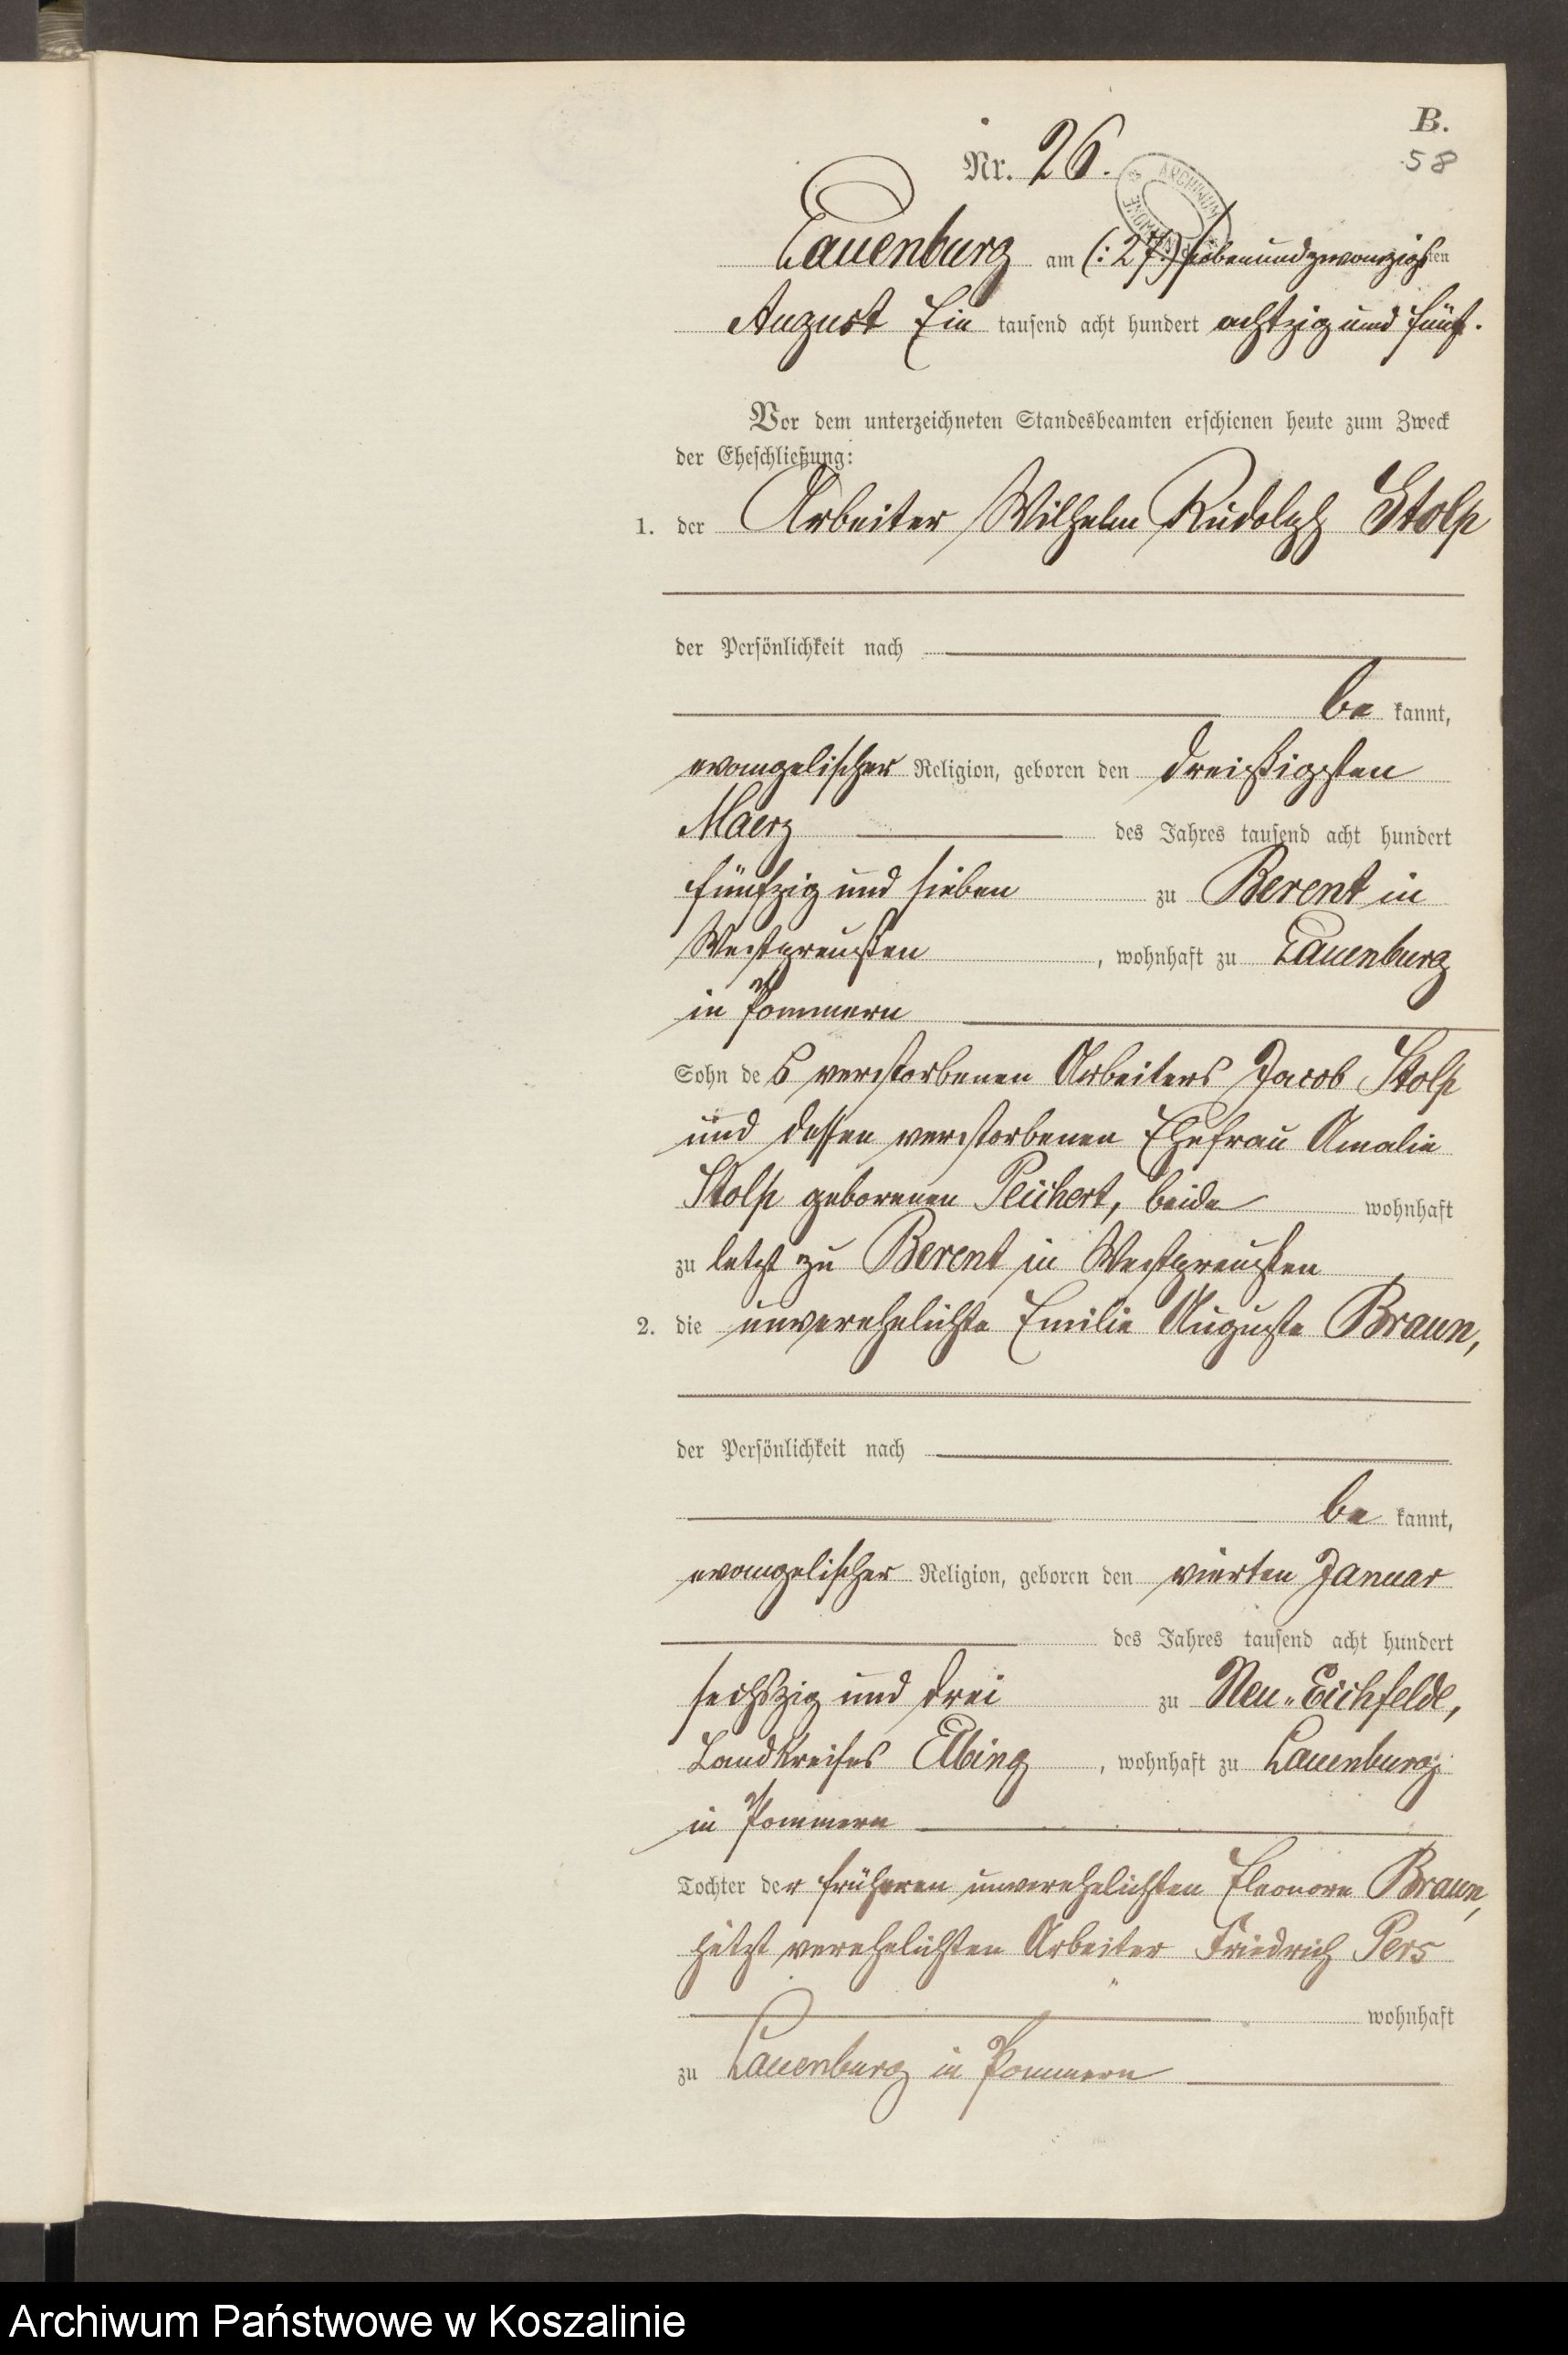 B.
58
Nr. 26.
ARCHIWUM
Lauenburg am (: 27 :) siebenundzwanzigsten
August Ein tausend acht hundert achtzig und fünf.
Vor dem unterzeichneten Standesbeamten erschienen heute zum Zweck
der Eheschließung:
1. der Arbeiter Wilhelm Rudolph Stolp
der Persönlichkeit nach
be kannt,
evangelischer Religion, geboren den dreißigsten
Maerz des Jahres tausend acht hundert
fünfzig und sieben zu Berent in
Westpreußen, wohnhaft zu Lauenburg
in Pommern
Sohn des verstorbenen Arbeiters Jacob Stolp
und dessen verstorbenen Ehefrau Amalie
Stolp geborenen Peichert, beide wohnhaft
zu letzt zu Berent in Westpreußen
2. die unverehelichte Emilie Auguste Braun,
der Persönlichkeit nach
be kannt,
evangelischer Religion, geboren den vierten Januar
des Jahres tausend acht hundert
sechszig und drei zu Neu-Eichfelde,
Landkreises Elbing, wohnhaft zu Lauenburg
in Pommern
Tochter der früheren unverehelichten Eleonore Braun,
jetzt verehelichten Arbeiter Friedrich Pers
wohnhaft
zu Lauenburg in Pommern
Archiwum Państwowe w Koszalinie